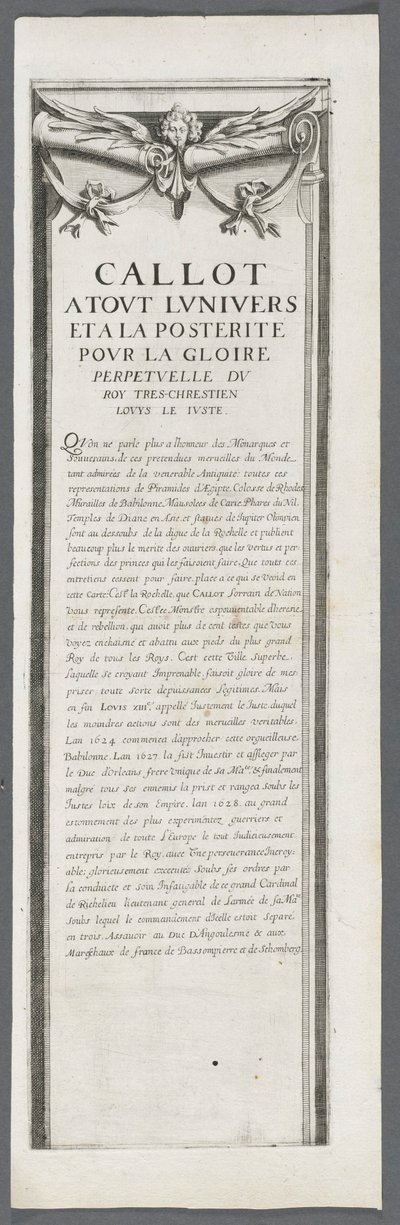 CALLOT
A TOVT LVNIVERS
ET A LA POSTERITE
POVR LA GLOIRE
PERPETVELLE DV
ROY TRES-CHRESTIEN
LOVYS LE IVSTE.
QVon ne parle plus a lhonneur des Monarques et
Souuerains, de ces pretendues merueilles du Monde
tant admirées de la venerable Antiquité: toutes ces
representations de Piramides dÆgipte, Colosse de Rhodes
Murailles de Babilonne, Mausolees de Carie, Phares du Nil,
Temples de Diane en Asie, et statues de Iupiter Olimpien
sont au dessoubs de la digue de la Rochelle et publient
beaucoup plus le merite des ouuriers, que les vertus et per-
fections des princes qui les faisoient faire. Que touts ces
entretiens cessent pour faire place a ce qui se veoid en
cette Carte: Cest la Rochelle, que CALLOT Lorrain de Nation
vous represente. Cest ce Monstre espouuentable dheresie
et de rebellion, qui auoit plus de cent testes que vous
voyez enchaisné et abattu aux pieds du plus grand
Roy de tous les Roys. Cest cette Ville superbe,
laquelle se croyant Imprenable, faisoit gloire de mes
priser toute sorte depuissances Legitimes. Mais
en fin LOVIS XIII. appellé Iustement le Iuste, duquel
les moindres actions sont des merueilles veritables.
Lan 1624 commencea dapprocher cette orgueilleuse
Babilonne. Lan 1627 la fist Inuestir et assieger par
le Duc d'Orleans, frere Vnique de sa Ma.te & finalement
malgré tous ses ennemis la prist et rangea soubs les
Iustes loix de son Empire. lan 1628. au grand
estonnement des plus experimentez guerriers et
admiration de toute L'Europe le tout Iudicieusement
entrepris par le Roy, auec Vne perseuerance Incroy:
able; glorieusement executée soubs ses ordres par
La conduicte et soin Infatigable de ce grand Cardinal
de Richelieu lieutenant general de Larmée de sa Ma.te
soubs lequel le commandement dIcelle estoit separé
en trois. Assauoir au Duc D'Angoulesme & aux
Mareschaux de france de Bassompierre et de Schomberg.